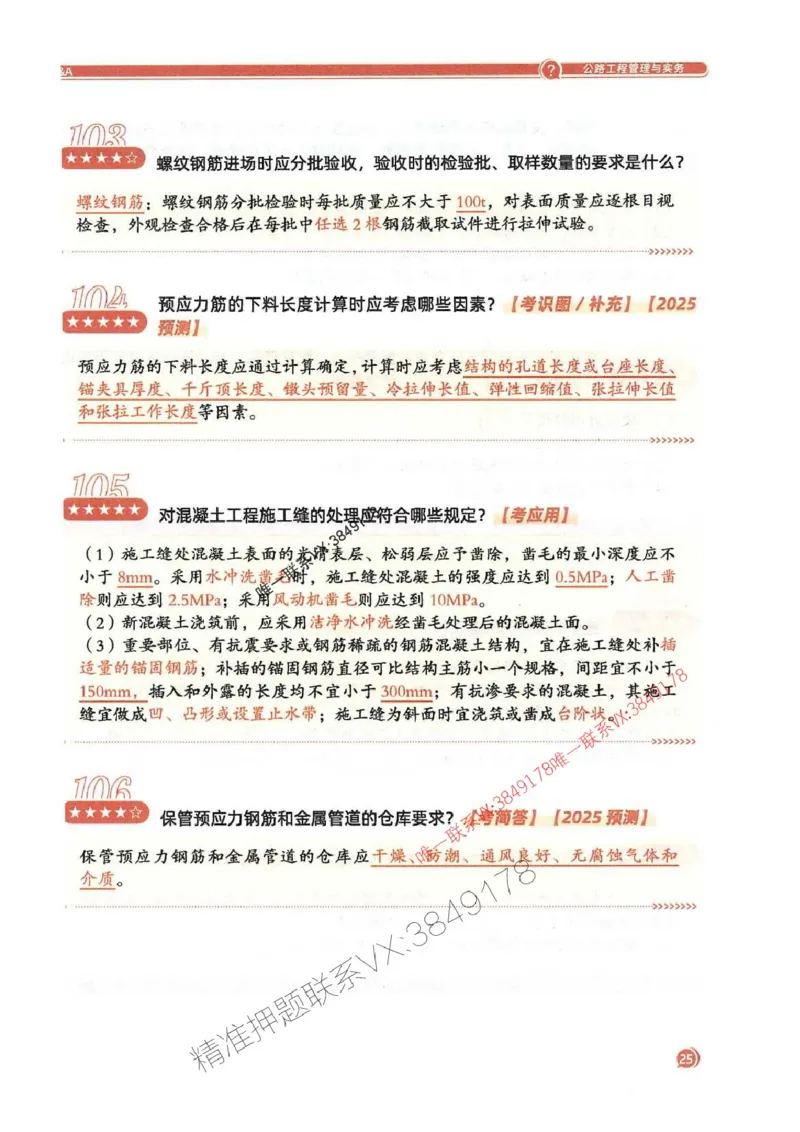 &A
? 公路工程管理与实务
103
★★★★☆ 螺纹钢筋进场时应分批验收，验收时的检验批、取样数量的要求是什么？
螺纹钢筋：螺纹钢筋分批检验时每批质量应不大于 100t，对表面质量应逐根目视
检查，外观检查合格后在每批中任选 2 根钢筋截取试件进行拉伸试验。
104
★★★★★ 预应力筋的下料长度计算时应考虑哪些因素？【考识图 / 补充】【2025
预测】
预应力筋的下料长度应通过计算确定，计算时应考虑结构的孔道长度或台座长度、
锚夹具厚度、千斤顶长度、镦头预留量、冷拉伸长值、弹性回缩值、张拉伸长值
和张拉工作长度等因素。
105
★★★★★ 对混凝土工程施工缝的处理应符合哪些规定？【考应用】
（1）施工缝处混凝土表面的光滑表层、松弱层应予凿除，凿毛的最小深度应不
小于 8mm。采用水冲洗凿毛时，施工缝处混凝土的强度应达到 0.5MPa；人工凿
除则应达到 2.5MPa；采用风动机凿毛则应达到 10MPa。
（2）新混凝土浇筑前，应采用洁净水冲洗经凿毛处理后的混凝土面。
（3）重要部位、有抗震要求或钢筋稀疏的钢筋混凝土结构，宜在施工缝处补插
适量的锚固钢筋；补插的锚固钢筋直径可比结构主筋小一个规格，间距宜不小于
150mm，插入和外露的长度均不宜小于 300mm；有抗渗要求的混凝土，其施工
缝宜做成凹、凸形或设置止水带；施工缝为斜面时宜浇筑或凿成台阶状。
唯一联系VX:3849178
唯一联系VX:3849178
106
★★★★☆ 保管预应力钢筋和金属管道的仓库要求？【考简答】【2025 预测】
唯一联系VX:3849178
保管预应力钢筋和金属管道的仓库应干燥、防潮、通风良好、无腐蚀气体和
介质。
精准押题联系VX:3849178
25